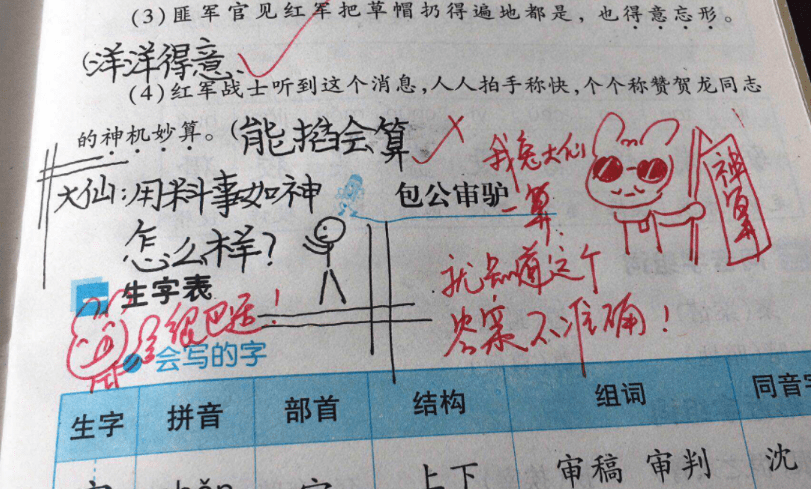 (3) 匪军官见红军把草帽扔得遍地都是，也得意忘形。
(洋洋得意)
(4) 红军战士听到这个消息，人人拍手称快，个个称赞贺龙同志
的神机妙算。(能掐会算)
大仙：用料事如神
怎么样？
我兔大仙
一算
就知道这个
答案不准确！
神算
包公审驴
生字表
给巴适！
会写的字
生字 拼音 部首 结构 组词 同音字
上下 审稿 审判 沈